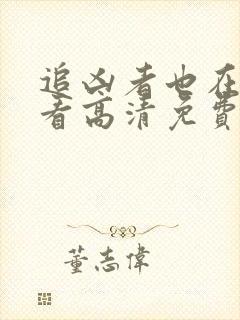 追凶者也在
看高清免費
董志偉